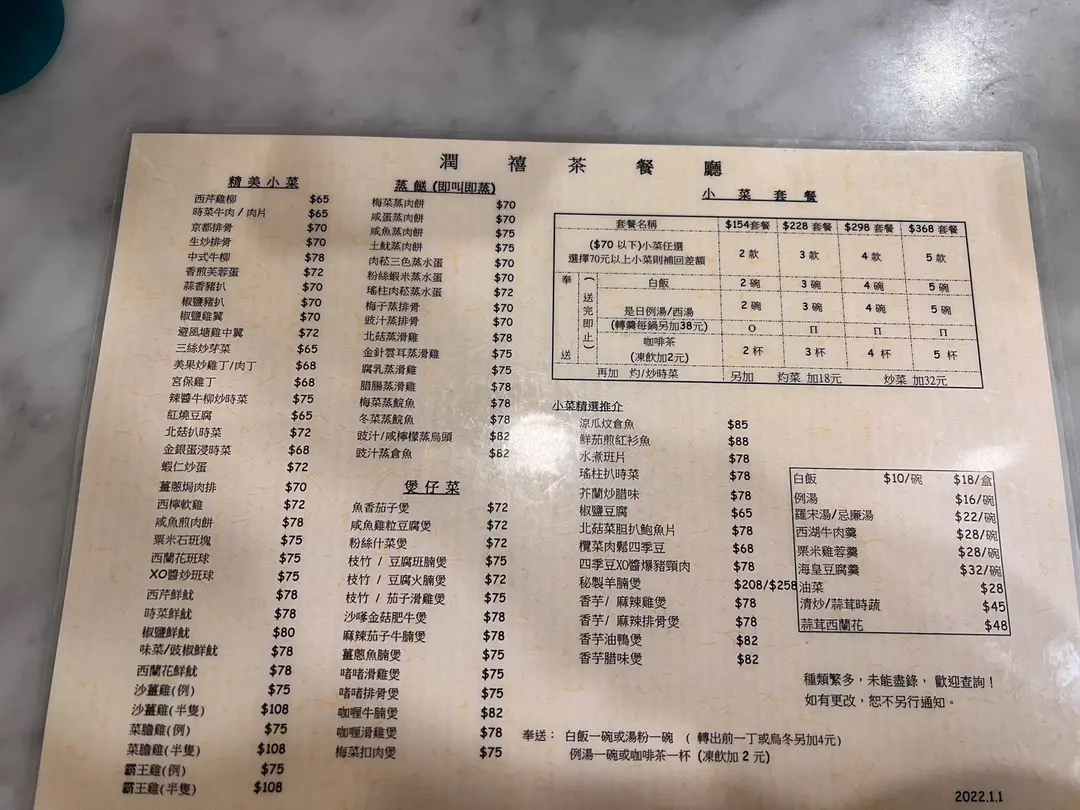 潤禧茶餐廳
精美小菜
西芹雞柳 $65
時菜牛肉/肉片 $65
京都排骨 $70
生炒排骨 $70
中式牛柳 $78
香煎芙蓉蛋 $72
蒜香豬扒 $70
椒鹽豬扒 $70
椒鹽雞翼 $70
避風塘雞中翼 $72
三絲炒芽菜 $65
美果炒雞丁/肉丁 $68
宮保雞丁 $68
辣醬牛柳炒時菜 $75
紅燒豆腐 $65
北菇扒時菜 $72
金銀蛋浸時菜 $68
蝦仁炒蛋 $72
薑蔥焗肉排 $70
西檸軟雞 $72
咸魚煎肉餅 $78
粟米石班塊 $75
西蘭花班球 $75
XO醬炒班球 $75
西芹鮮魷 $78
時菜鮮魷 $78
椒鹽鮮魷 $80
味菜/豉椒鮮魷 $78
西蘭花鮮魷 $78
沙薑雞(例) $75
沙薑雞(半隻) $108
菜膽雞(例) $75
菜膽雞(半隻) $108
霸王雞(例) $75
霸王雞(半隻) $108
蒸餸(即叫即蒸)
梅菜蒸肉餅 $70
咸蛋蒸肉餅 $70
咸魚蒸肉餅 $75
土魷蒸肉餅 $75
肉崧三色蒸水蛋 $70
粉絲蝦米蒸水蛋 $70
瑤柱肉崧蒸水蛋 $72
梅子蒸排骨 $70
豉汁蒸排骨 $70
北菇蒸滑雞 $78
金針雲耳蒸滑雞 $75
腐乳蒸滑雞 $75
腊腸蒸滑雞 $78
梅菜蒸鯇魚 $78
冬菜蒸鯇魚 $78
豉汁/咸檸檬蒸烏頭 $82
豉汁蒸倉魚 $82
煲仔菜
魚香茄子煲 $72
咸魚雞粒豆腐煲 $72
粉絲什菜煲 $72
枝竹 / 豆腐班腩煲 $75
枝竹 / 豆腐火腩煲 $72
枝竹 / 茄子滑雞煲 $75
沙嗲金菇肥牛煲 $78
麻辣茄子牛腩煲 $78
薑蔥魚腩煲 $75
啫啫滑雞煲 $75
啫啫排骨煲 $75
咖喱牛腩煲 $82
咖喱滑雞煲 $78
梅菜扣肉煲 $75
小菜套餐
套餐名稱 $154套餐 $228套餐 $298套餐 $368套餐
($70 以下)小菜任選
選擇70元以上小菜則補回差額 2款 3款 4款 5款
奉送(送完即止)
白飯 2碗 3碗 4碗 5碗
是日例湯/西湯 2碗 3碗 4碗 5碗
(轉羹每鍋另加38元) O П П П
咖啡茶
(凍飲加2元) 2杯 3杯 4杯 5杯
再加 灼/炒時菜 另加 灼菜 加18元 炒菜 加32元
小菜精選推介
涼瓜炆倉魚 $85
鮮茄煎紅衫魚 $88
水煮班片 $78
瑤柱扒時菜 $78
芥蘭炒腊味 $78
椒鹽豆腐 $65
北菇菜胆扒鮑魚片 $78
欖菜肉鬆四季豆 $68
四季豆XO醬爆豬頸肉 $78
秘製羊腩煲 $208/$258
香芋/ 麻辣雞煲 $78
香芋/ 麻辣排骨煲 $78
香芋油鴨煲 $82
香芋腊味煲 $82
白飯 $10/碗 $18/盒
例湯 $16/碗
羅宋湯/忌廉湯 $22/碗
西湖牛肉羹 $28/碗
粟米雞蓉羹 $28/碗
海皇豆腐羹 $32/碗
油菜 $28
清炒/蒜茸時蔬 $45
蒜茸西蘭花 $48
種類繁多，未能盡錄， 歡迎查詢！
如有更改，恕不另行通知。
奉送： 白飯一碗或湯粉一碗 ( 轉出前一丁或烏冬另加4元)
例湯一碗或咖啡茶一杯 (凍飲加 2 元)
2022.1.1